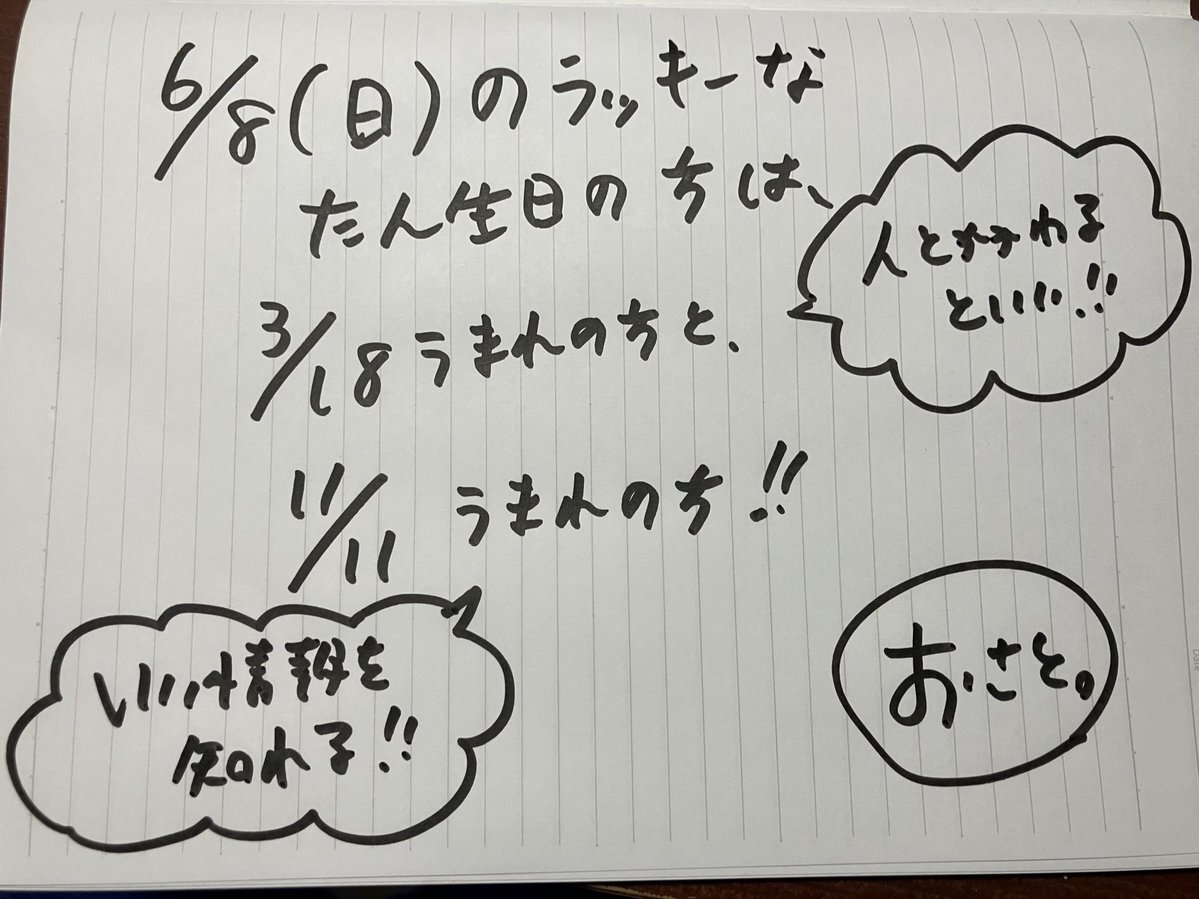 6/8(日)のラッキーな
たん生日の方は、
3/18うまれの方と、
11/11うまれの方!!
人と
といい!!
いい情報を
知れる!!
おさと。